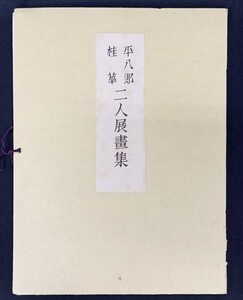 平八郎
桂華
二人展畫集